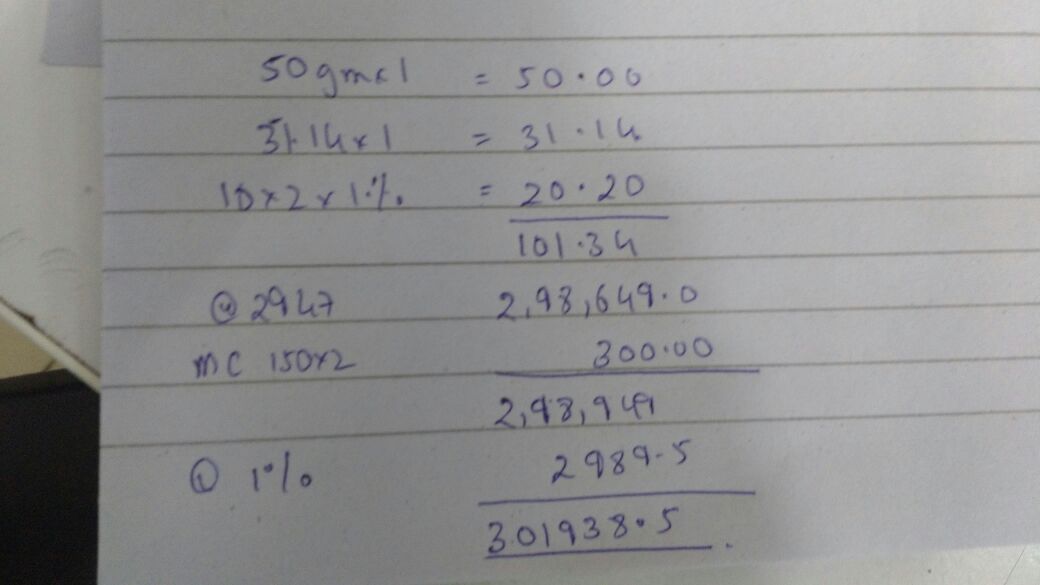 50gm x 1 = 50.00
31.14 x 1 = 31.14
10 x 2 x 1% = 20.20
101.34
@ 2947 2,98,649.0
MC 150x2 300.00
2,98,949
@ 1% 2989.5
301938.5